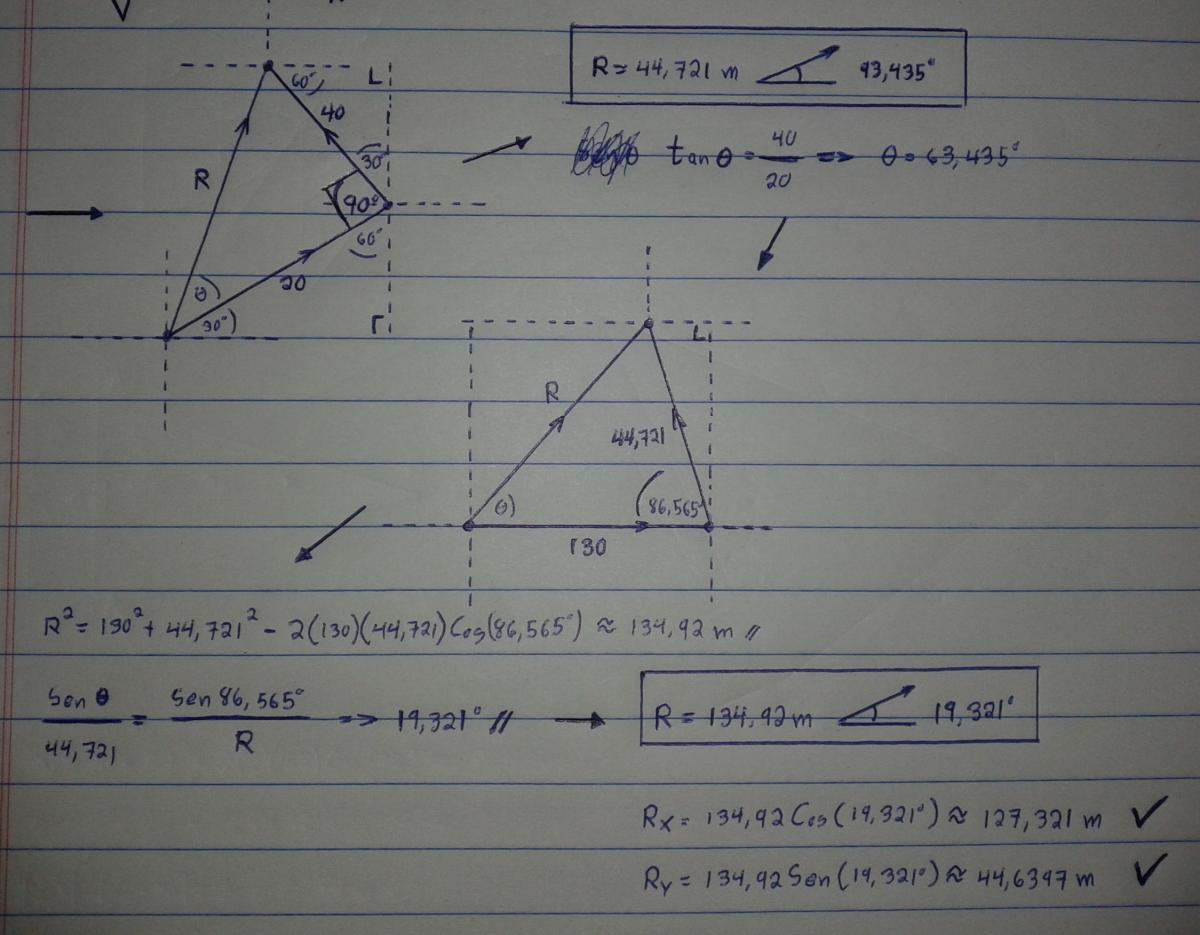 R = 44,721 m 93,435°
60° L
40
30°
R
90°
60°
20
θ
30°
tan θ = 40/20 => θ = 63,435°
L
R
44,721
θ
86,565°
130
R² = 130² + 44,721² - 2(130)(44,721) Cos(86,565°) ≈ 134,92 m //
Sen θ / 44,721 = Sen 86,565° / R => 19,321° // → R = 134,92 m 19,321°
Rx = 134,92 Cos(19,321°) ≈ 127,321 m ✓
Ry = 134,92 Sen(19,321°) ≈ 44,6397 m ✓